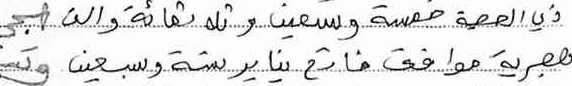 ذي الحجة خمسة وتسعين وثلاثمائة والف
هجرية موافق فاتح يناير ستة وسبعين